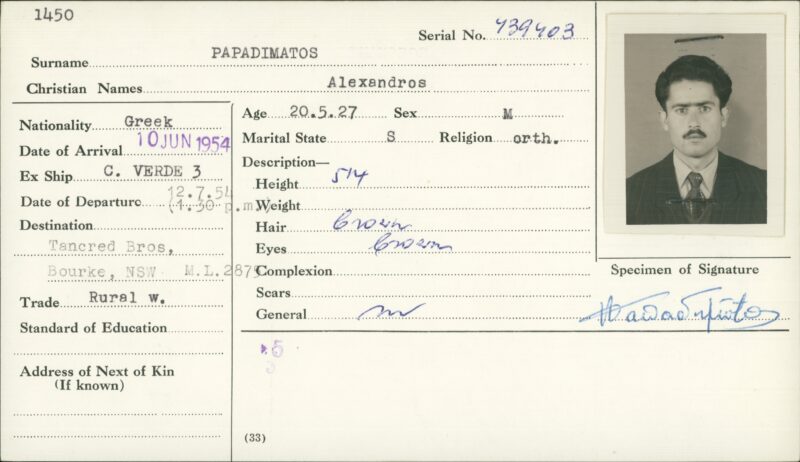 1450
Serial No. 439403
Surname PAPADIMATOS
Christian Names Alexandros
Nationality Greek
Date of Arrival 10 JUN 1954
Ex Ship C. VERDE 3
Date of Departure 12.7.54
(1.30 p.m.)
Destination
Tancred Bros,
Bourke, NSW M.L.2875
Trade Rural w.
Standard of Education
Address of Next of Kin
(If known)
Age 20.5.27 Sex M
Marital State S Religion orth.
Description—
Height 5'4
Weight
Hair Brown
Eyes Brown
Complexion
Scars
General
5
5
(33)
Specimen of Signature